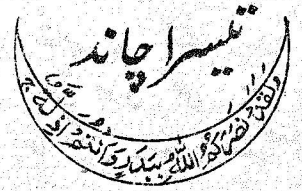 تیسرا چاند
وَلَقَدْ نَصَرَكُمُ اللّٰهُ بِبَدْرٍ وَّاَنْتُمْ اَذِلَّةٌ ج